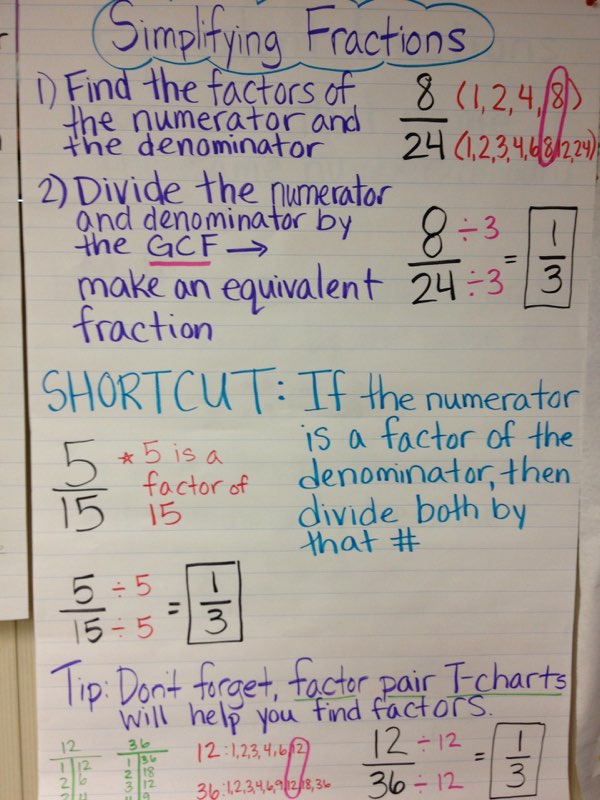 Simplifying Fractions
1) Find the factors of
the numerator and
the denominator
8 (1, 2, 4, 8)
24 (1,2,3,4,6,8,12,24)
2) Divide the numerator
and denominator by
the GCF →
make an equivalent
fraction
8 ÷3 = 1
24 ÷3 3
SHORTCUT: If the numerator
is a factor of the
denominator, then
divide both by
that #
5 * 5 is a
factor of
15 15
5 ÷ 5 = 1
15 ÷ 5 3
Tip: Don't forget, factor pair T-charts
will help you find factors.
12
1 12
2 6
36
1 36
2 18
3 12
12: 1,2,3,4,6,12
36: 1,2,3,4,6,9,12,18,36
12 ÷ 12 = 1
36 ÷ 12 3